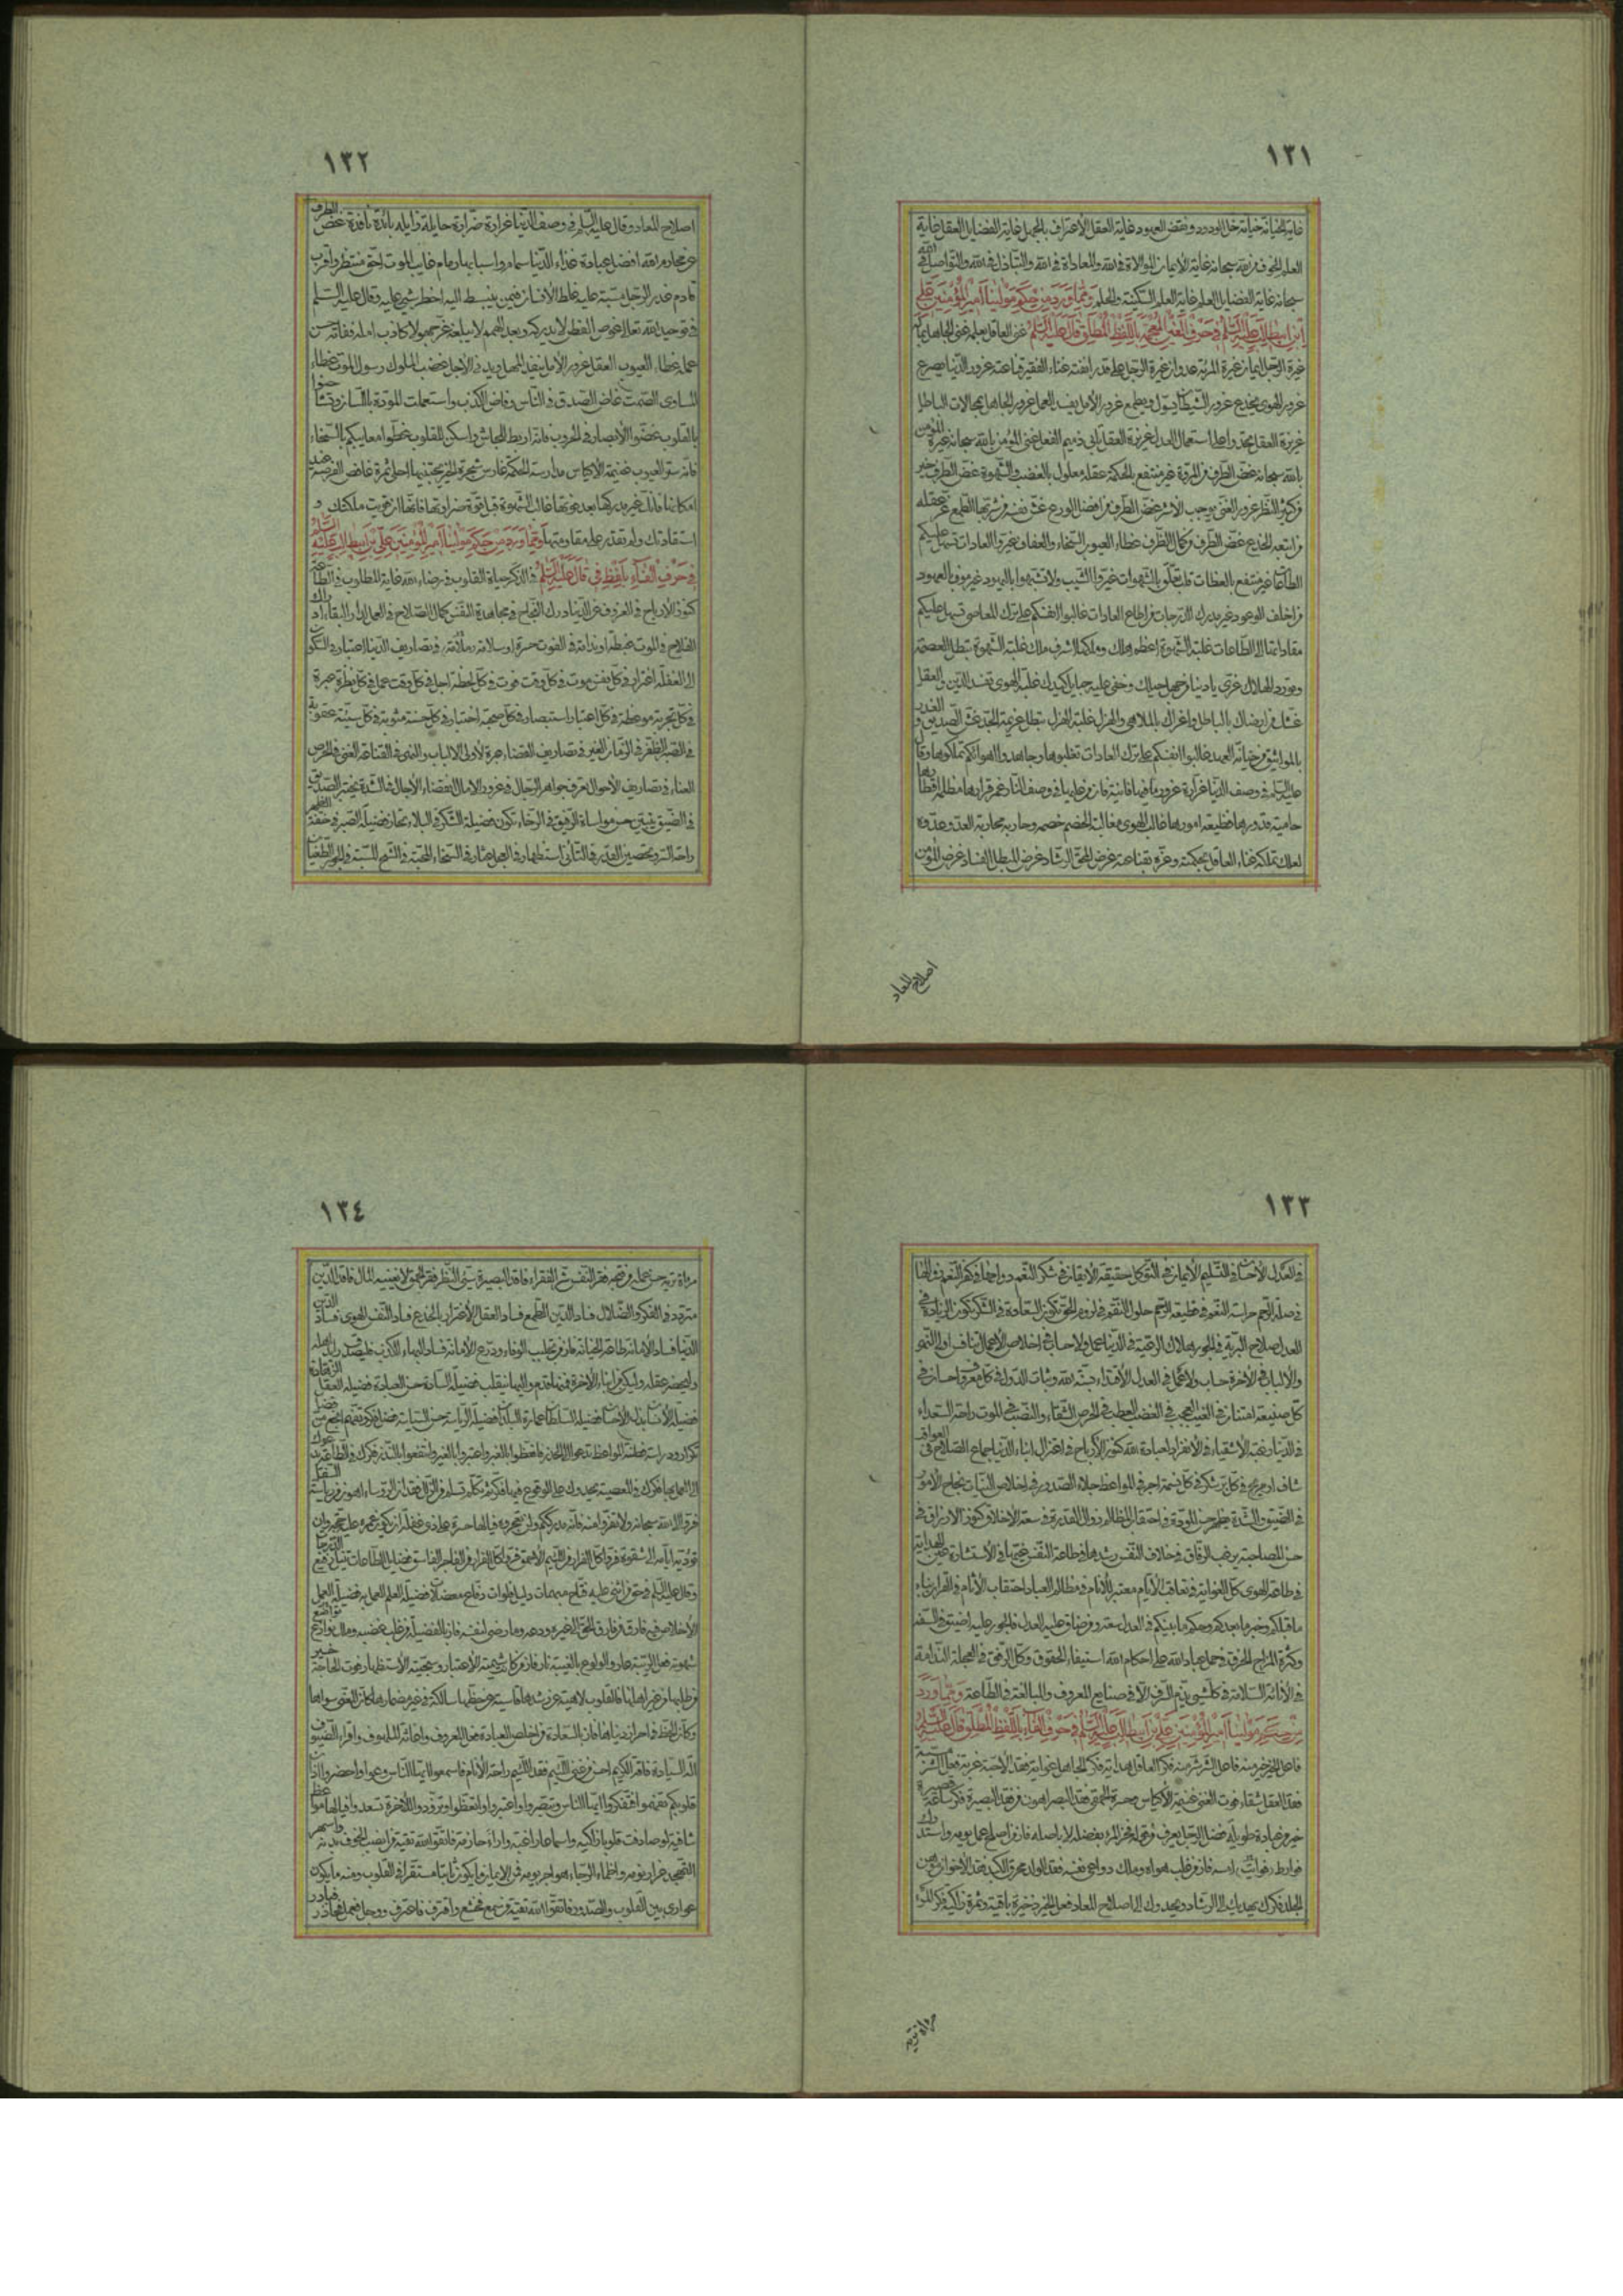 ١٣١
غاية الخيانة خيانة خل الودود ونقض العهود غاية العقل الاعتراف بالجهل غاية الفضايل العقل غاية
العلم الخوف من الله سبحانه غاية الايمان الموالاة فى الله والمعاداة فى الله والتباذل فى الله والتواصل فى الله
سبحانه غاية الفضايل العلم غاية العلم السكينة والحلم وممّا ورد من حكم مولينا امير المؤمنين علي
ابن ابيطالب عليه السلم فى حرف الغين المعجمة باللفظ المطلق قال عليه السلم غنى العاقل بعلمه غنى الجاهل بماله
غيرة الرجل ايمان غيرة المرئة عدوان غيرة الرجل على قدر انفته غناء الفقير قناعته غرور الدنيا يصرع
غرور الهوى يخدع غرور الشيطان يسوّل ويطمع غرور الامل يفسد العمل غرور الجاهل بمحالات الباطل
غريزة العقل تحدو على استعمال العدل غريزة العقل تابى ذميم الفعل غنى المؤمن بالله سبحانه غيرة المؤمن
بالله سبحانه غضّ الطرف من المروّة غير منتفع بالحكمة عقل معلول بالغضب والشهوة غضّ الطرف خير
من كثير النظر غرور الغنى يوجب الاشر غضّ الطرف من افضل الورع غشّ نفسه من شربها الطمع عن عقله
من ابتعد الخدع غضّ الطرف من كمال الظرف غطاء العيوب السخاء والعفاف غيّروا العادات تسهل عليكم
الطاعات غير منتفع بالعظات قلب تعلّق بالشهوات غيّروا الشيب ولا تشبهوا باليهود غير موف بالعهود
من اخلف الوعود غير مدرك الدرجات من اطاع العادات غالبوا انفسكم على ترك المعاصى تسهل عليكم
مقادتها الى الطاعات غلبة الشهوة اعظم هلك وملكها اشرف ملك غلبة الشهوة تبطل العصمة
وتورد الهلاك غرّى يا دنيا من جهل حيلك وخفى عليه حبايل كيدك غلبة الهوى تفسد الدين والعقل
غشّك من ارضاك بالباطل واغراك بالملاهى والهزل غلبة الهزل تبطل عزيمة الجدّ غشّ الصديق والغدر
بالمواثيق من خيانة العهد غالبوا انفسكم على ترك العادات تغلبوها وجاهدوا اهوائكم تملكوها وقال
عليه السلم فى وصف الدنيا غرّارة غرور ما فيها فانية فان من عليها فى وصف النار غمر قرارها مظلمة اقطارها
حامية قدورها فظيعة امورها غالب الهوى مغالبة الخصم خصمه وحاربه محاربة العدو عدوه
لعلك تملكه غناء العاقل بحكمته وعزّه بقناعته غرض المحقّ الرشاد غرض المبطل الفساد غرض المؤمن
اصلاح المعاد
١٣٢
اصلاح المعاد وقال عليه السلم فى وصف الدنيا غرارة ضرارة حايلة زايله بائدة نافدة غضّ الطرف
عن محارم الله افضل عبادة غذاء الدنيا سمام واسبابها رمام غايب الموت احقّ منتظر واقرب
قادم غدر الرجل مسبّة عليه غلط الانسان فيمن ينبسط اليه اخطر شىء عليه وقال عليه السلم
فى توحيد الله تعالى غوص الفطن لا يدركه وبعد الهمم لا يبلغه غرّ جهولا كاذب امله ففاته حسن
عمله غطاء العيوب العقل غرور الامل ينفد المهل ويدنى الاجل غضب الملوك رسول الموت غطاء
المساوى الصمت غاض الصدق فى الناس وفاض الكذب واستعملت المودة باللسان وتشاحنوا
بالقلوب غضّوا الابصار فى الحروب فانّه اربط للجاش واسكن للقلوب غطّوا معايبكم بالسخاء
فانه ستر العيوب غنيمة الاكياس مدارسة الحكمة غارس شجرة الخير يجتنيها احلى ثمرة غافص الفرصة عند
امكانها فانك غير مدركها بعد فوتها غالب الشهوة قبل قوّة ضراوتها فانّها ان قويت ملكتك و
استقادتك ولم تقدر على مقاومتها وممّا ورد من حكم مولينا امير المؤمنين علي بن ابيطالب عليه السلم
فى حرف الفاء بلفظ فى قال عليه السلم فى الذكر حياة القلوب فى رضاء الله غاية المطلوب فى الطاعة
كنوز الارباح فى العزوف عن الدنيا درك النجاح فى مجاهدة النفس كمال الصلاح فى العمل لدار البقاء ادراك
الفلاح فى الموت غبطة او ندامة فى الفوت حسرة او سلامة وملامة فى تصاريف الدنيا اعتبار فى السكون
الى الغفلة اغترار فى كل نفس موت فى كل وقت فوت فى كل لحظة اجل فى كل وقت عمل فى كل نظرة عبرة
فى كل تجربة موعظة فى كل اعتبار استبصار فى كل صحبة اختيار فى كل حسنة مثوبة فى كل سيئة عقوبة
فى الصبر الظفر فى الزمان الغير فى تصاريف القضاء عبرة لاولى الالباب والنهى فى القناعة الغنى فى الحرص
العناء فى تصاريف الاحوال تعرف جواهر الرجال فى غرور الامال انقضاء الاجال فى الشدة يختبر الصديق
فى الضيق يتبين حسن مواساة الرفيق فى الرخاء تكون فضيلة الشكر فى البلاء تحاز فضيلة الصبر فى خفّة الظهر
راحة السر وتحصين القدر فى التأنى استظهار فى العجل عثار فى السخاء المحبة فى الشح المسبّة فى الجور الطغيان
١٣٣
فى العدل الاحسان فى التسليم الايمان فى التوكل حقيقة الايقان فى شكر النعم دوامها فى كفر النعم زوالها
فى صلة الرحم حراسة النعم فى قطيعة الرحم حلول النقم فى لزوم الحق تكون السعادة فى الشكر تكون الزيادة فى
العدل صلاح البرية فى الجور هلاك الرعية فى الدنيا عمل ولا حساب فى اخلاص الاعمال تنافس اولى النهى
والالباب فى الاخرة حساب ولا عمل فى العدل الاقتداء بسنّة الله وثبات الدول فى كل معروف احسان فى
كلّ صنيعة امتنان فى الغيب العجب فى الغضب العطب فى الحرص الشقاء والنصب فى الموت راحة السعداء
فى الدنيا رغبة الاشقياء فى الانفراد لعبادة الله كنوز الارباح فى اعتزال ابناء الدنيا جماع الصلاح فى العواقب
شاف او مريح فى كل برّ شكر فى كل نسمة اجر فى المواعظ جلاء الصدور فى اخلاص النيات نجاح الامور
فى الضيق والشدة يظهر حسن المودة فى احتقاب المظالم زوال القدرة فى سعة الاخلاق كنوز الارزاق فى
حسن المصاحبة يرغب الرفاق فى خلاف النفس رشدها فى طاعة النفس غيّها فى الاستشارة عين الهداية
فى طاعة الهوى كل الغواية فى تعاقب الايام معتبر للانام فى مظالم العباد احتقاب الاثام فى القرآن نباء
ما قبلكم وخبر ما بعدكم وحكم ما بينكم فى العدل سعة ومن ضاق عليه العدل فالجور عليه اضيق فى السفه
وكثرة المزاح الخرق فى حمل عباد الله على احكام الله استيفاء الحقوق وكلّ الرفق فى العجلة الندامة
فى الاناة السلامة فى كل شىء يذم السرف الا فى صنايع المعروف والمبالغة فى الطاعة وممّا ورد
من حكم مولينا امير المؤمنين علي بن ابيطالب عليه السلم فى حرف الفاء باللفظ المطلق قال عليه السلم
فاعل الخير خير منه فاعل الشر شر منه فكر العاقل هداية فكر الجاهل غواية فقد الاحبة غربة فعل الشر مسبة
فقد العقل شقاء فوت الغنى غنيمة الاكياس وحسرة الحمقى فقد البصر اهون من فقد البصيرة فكر ساعة قصيرة
خير من عبادة طويلة فضل الرجل يعرف من قوله فخر المرء بفضله لا باصله فاز من اصلح عمل يومه واستدرك
فوارط امسه فاز من غلب هواه وملك دواعى نفسه فقد الولد محرق الكبد فقد الاخوان موهن
الجلد فكرك يهديك الى الرشاد ويحدوك الى اصلاح المعاد فعل الخير ذخيرة باقية وثمرة زاكية فكر المرء
مراة تريه
١٣٤
مراة تريه حسن عمله من قبحه فقر النفس شر الفقراء فاقد البصيرة سيّئ النظر فقر الحمق لا يغنيه المال فاقد الدين
متردد فى الكفر والضلال فساد الدين الطمع فساد العقل الاغترار بالخدع فساد النفس الهوى فساد الدين
الدنيا فساد الامانة طاعة الخيانة فاز من تجلبب الوفاء وادرع الامانة فساد البهاء الكذب فليصدق رائد اهله
وليحضر عقله وليكن من ابناء الاخرة فمنها قدم واليها ينقلب فضيلة السادة حسن العبادة فضيلة العقل الزهادة
فضيلة الانسان بذل الاحسان فضيلة السلطان عمارة البلدان فضيلة الرياسة حسن السياسة فضل فكر وتفهم انجع من فضل
تكرار ودراسة فطنة المواعظ تدعو الى الحذر فاتعظوا بالعبر واعتبروا بالغير وانتفعوا بالنذر فكرك فى الطاعة يدعوك
الى العمل بها فكرك فى المعصية يحدوك على الوقوع فيها فكّر ثم تكلّم تسلم من الزلل فقدان الرؤساء اهون من رياسة السفل
فروا الى الله سبحانه ولا تفروا منه فانّه مدرككم ولن تعجزوه فيا لها حسرة على ذى غفلة ان يكون عمره عليه حجة وان
تؤديه ايامه الى شقوة فرّوا كلّ الفرار من اللئيم الاحمق فرّوا كلّ الفرار من الفاجر الفاسق فضايل الطاعات تنيل رفيع الدرجات
وقال عليه السلم فى حق من اثنى عليه فتّاح مبهمات دليل فلوات دفّاع معضلات فضيلة العلم العمل به فضيلة العمل
الاخلاص فيه فارق من فارق الحق الى غيره ودعه وما رضى لنفسه فاز بالفضيلة من غلب غضبه وملك نوازع
شهوته فعل الريبة عار والولوع بالغيبة نار فاز من كان شيمته الاعتبار وسجيته الاستظهار فوت الحاجة خير
من طلبها من غير اهلها فالقلوب لاهية عن رشدها قاسية عن حظّها سالكة فى غير مضمارها كانّ المعنى سواها
وكانّ الحظ فى احراز دنياها فاز بالسعادة من اخلص العبادة فعل المعروف واغاثة الملهوف واقراء الضيوف
الة السيادة فاقة الكريم احسن من غنى اللئيم فقد اللئيم راحة الانام فاسمعوا ايها الناس وعوا واحضروا اذان
قلوبكم تفهموا فتفكروا ايها الناس وتبصروا واعتبروا واتعظوا وتزودوا للاخرة تسعدوا فيا لها مواعظ
شافية لو صادفت قلوبا زاكية واسماعا راغبة واراء حازمة فاتقوا الله تقية من انصب الخوف بدنه واسهر
التهجد غرار نومه واظماء الرجاء هواجر يومه فمن الايمان ما يكون ثابتا مستقرا فى القلوب ومنه ما يكون
عوارى بين القلوب والصدور فاتقوا الله تقية من سمع فخشع واقترف فاعترف ووجل فعمل وحاذر فبادر